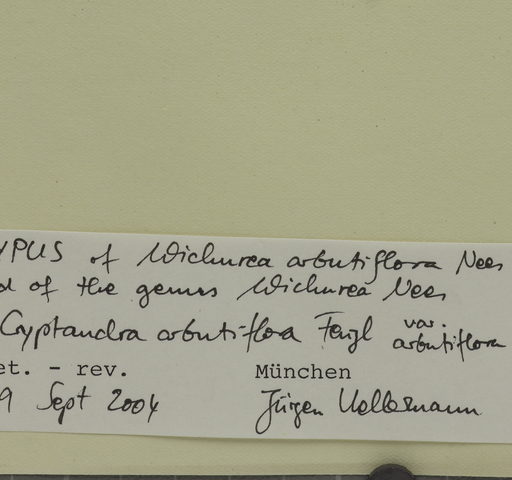 YPUS of Wichurea arbutiflora Nees
d of the genus Wichurea Nees
Cryptandra arbutiflora Fenzl var. arbutiflora
et. - rev. München
9 Sept 2004 Jürgen Kellermann